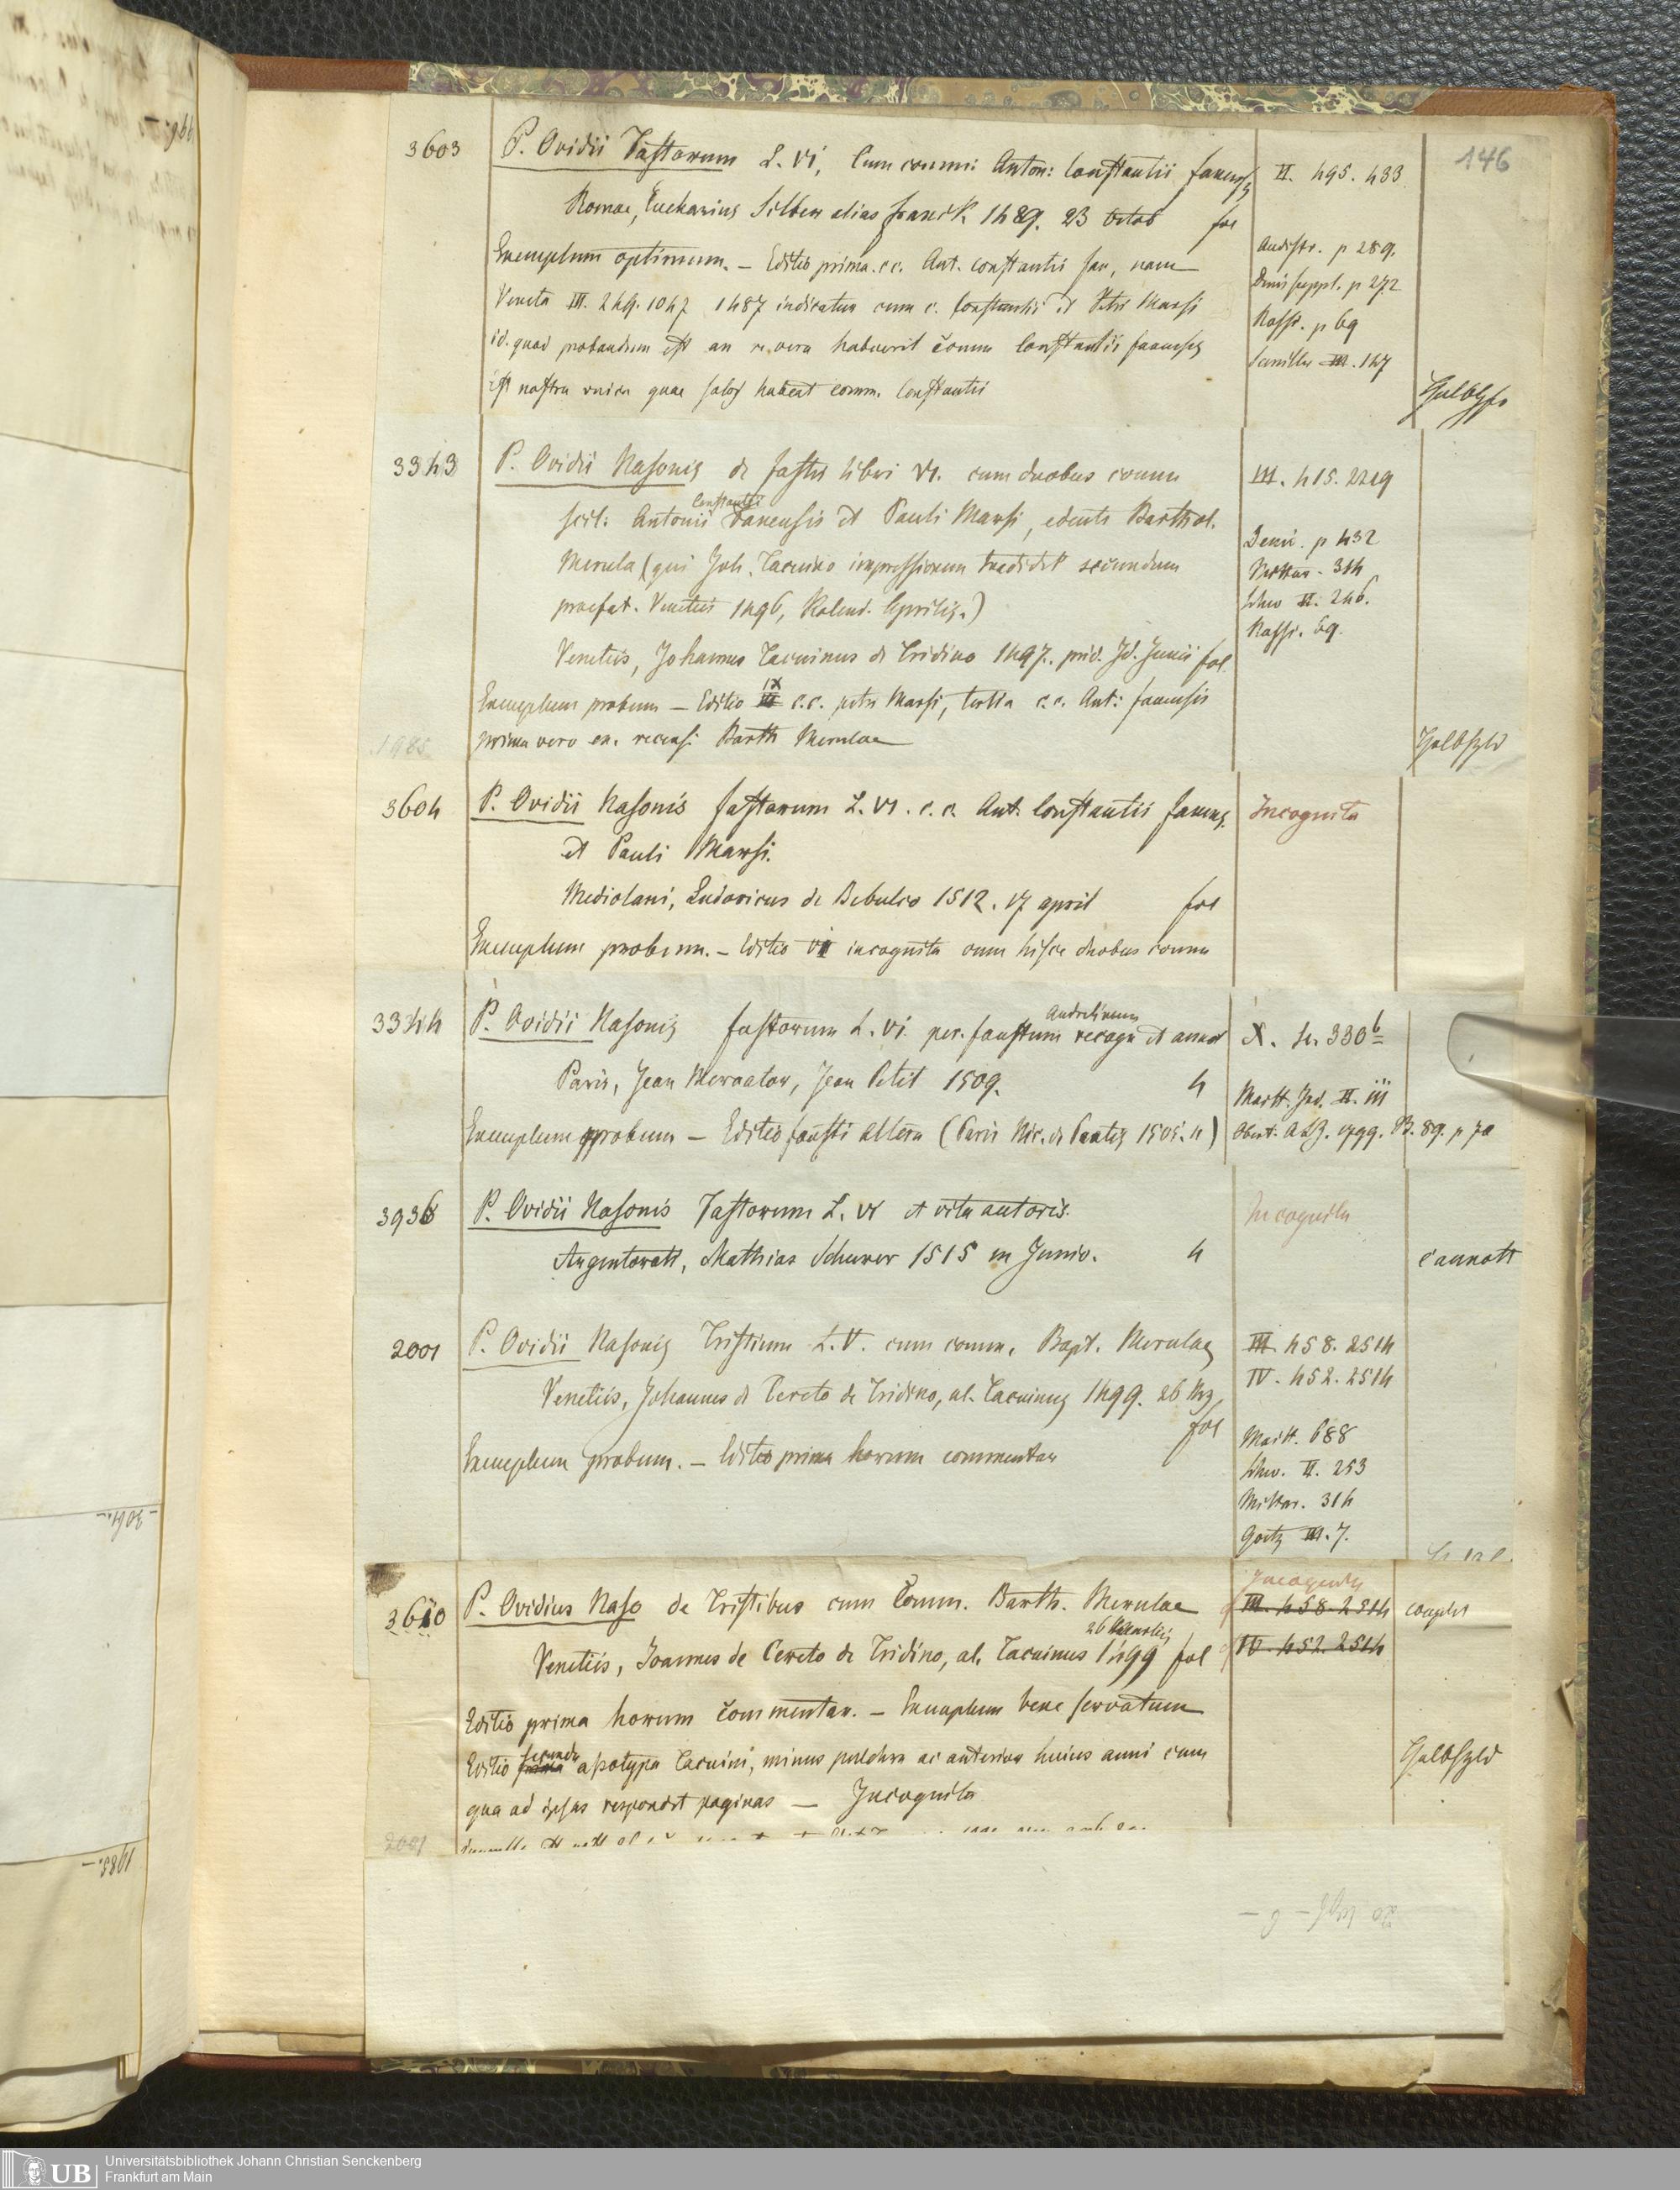 146
3603 P. Ovidii Fastorum L. VI, Cum comm: Anton: Constantii fanensis II. 495. 433
Romae, Eucharius Silber alias franck 1489. 23 Octob fol
Audifr. p 289.
Exemplum optimum. – Editio prima. c.c. Ant. Constantii fan, nam
Denis suppl. p 272
Veneta III. 249. 1047 1487 indicatur cum c. Constantii et Petri Marsi
Rossi. p 69
id. quod probandum est an re vera habuerit Comm Constantii fanensis
III. 147
est nostra unica quae solos habeat comm. Constantii
Halbfz
3343 P. Ovidii Nasonis de fastis libri VI. cum duobus comm
III. 415. 2219
Constantii
scil: Antonii Fanensis et Pauli Marsi, edente Barthol.
Denis. p 432
Merula (qui Joh. Tacuino impressionem tradidit secundum
Mittar. 314
praefat. Venetiis 1496, Kalend. Aprilis.)
II. 246.
Rossi. 69
Venetiis, Johannes Tacuinus de Tridino 1497. prid. Jd. Junii fol
IX
Exemplum probum – Editio c.c. petri Marsi, tertia c.c. Ant: fanensis
prima vero ex. recens. Barth Merulae
1985
Halbfzbd
3604 P. Ovidii Nasonis fastorum L. VI. c.c. Ant. Constantii fanens. Incognita
et Pauli Marsi.
Mediolani, Ludovicus de Bebulco 1512. 17 april fol
Exemplum probum. – Editio VI incognita cum hisce duobus comm
3344 P. Ovidii Nasonis fastorum L. VI per. faustum Andrelinum recogn et annot
X. 330b
Paris, Jean Mercator, Jean Petit 1509. 4
Maitt. Ind. II. iii
Exemplum probum – Editio fausti altera (Paris Nic. de Pratis 1505. 4)
1799. B. 89. p 70
3936 P. Ovidii Nasonis Fastorum L. VI et vita autoris.
Incognita
Argentorati, Mathias Schurer 1515 m Junio. 4
c annott
2001 P. Ovidii Nasonis Tristium L. V. cum comm. Bapt. Merulae
III. 458. 2514
IV. 452. 2514
Venetiis, Johannes de Cereto de Tridino, al. Tacuinus 1499. 26 Mz
fol
Maitt. 688
Exemplum probum. – Editio prima horum commentar
II. 253
Mittar. 314
Goetz III. 7.
3610 P. Ovidius Naso de Tristibus cum Comm. Barth. Merulae
Incognita
III. 458. 2514
complet
Venetiis, Joannes de Cereto de Tridino, al. Tacuinus 1499 fol
IV. 452. 2514
Editio prima horum Commentar. – Exemplum bene servatum
secunda
Editio apotypa Tacuini, minus pulchra ac anterior huius anni cum
Halbfzbd
qua ad ipsas respondet paginas – Incognita
2001
3061.–
1985.–
UB
Universitätsbibliothek Johann Christian Senckenberg
Frankfurt am Main